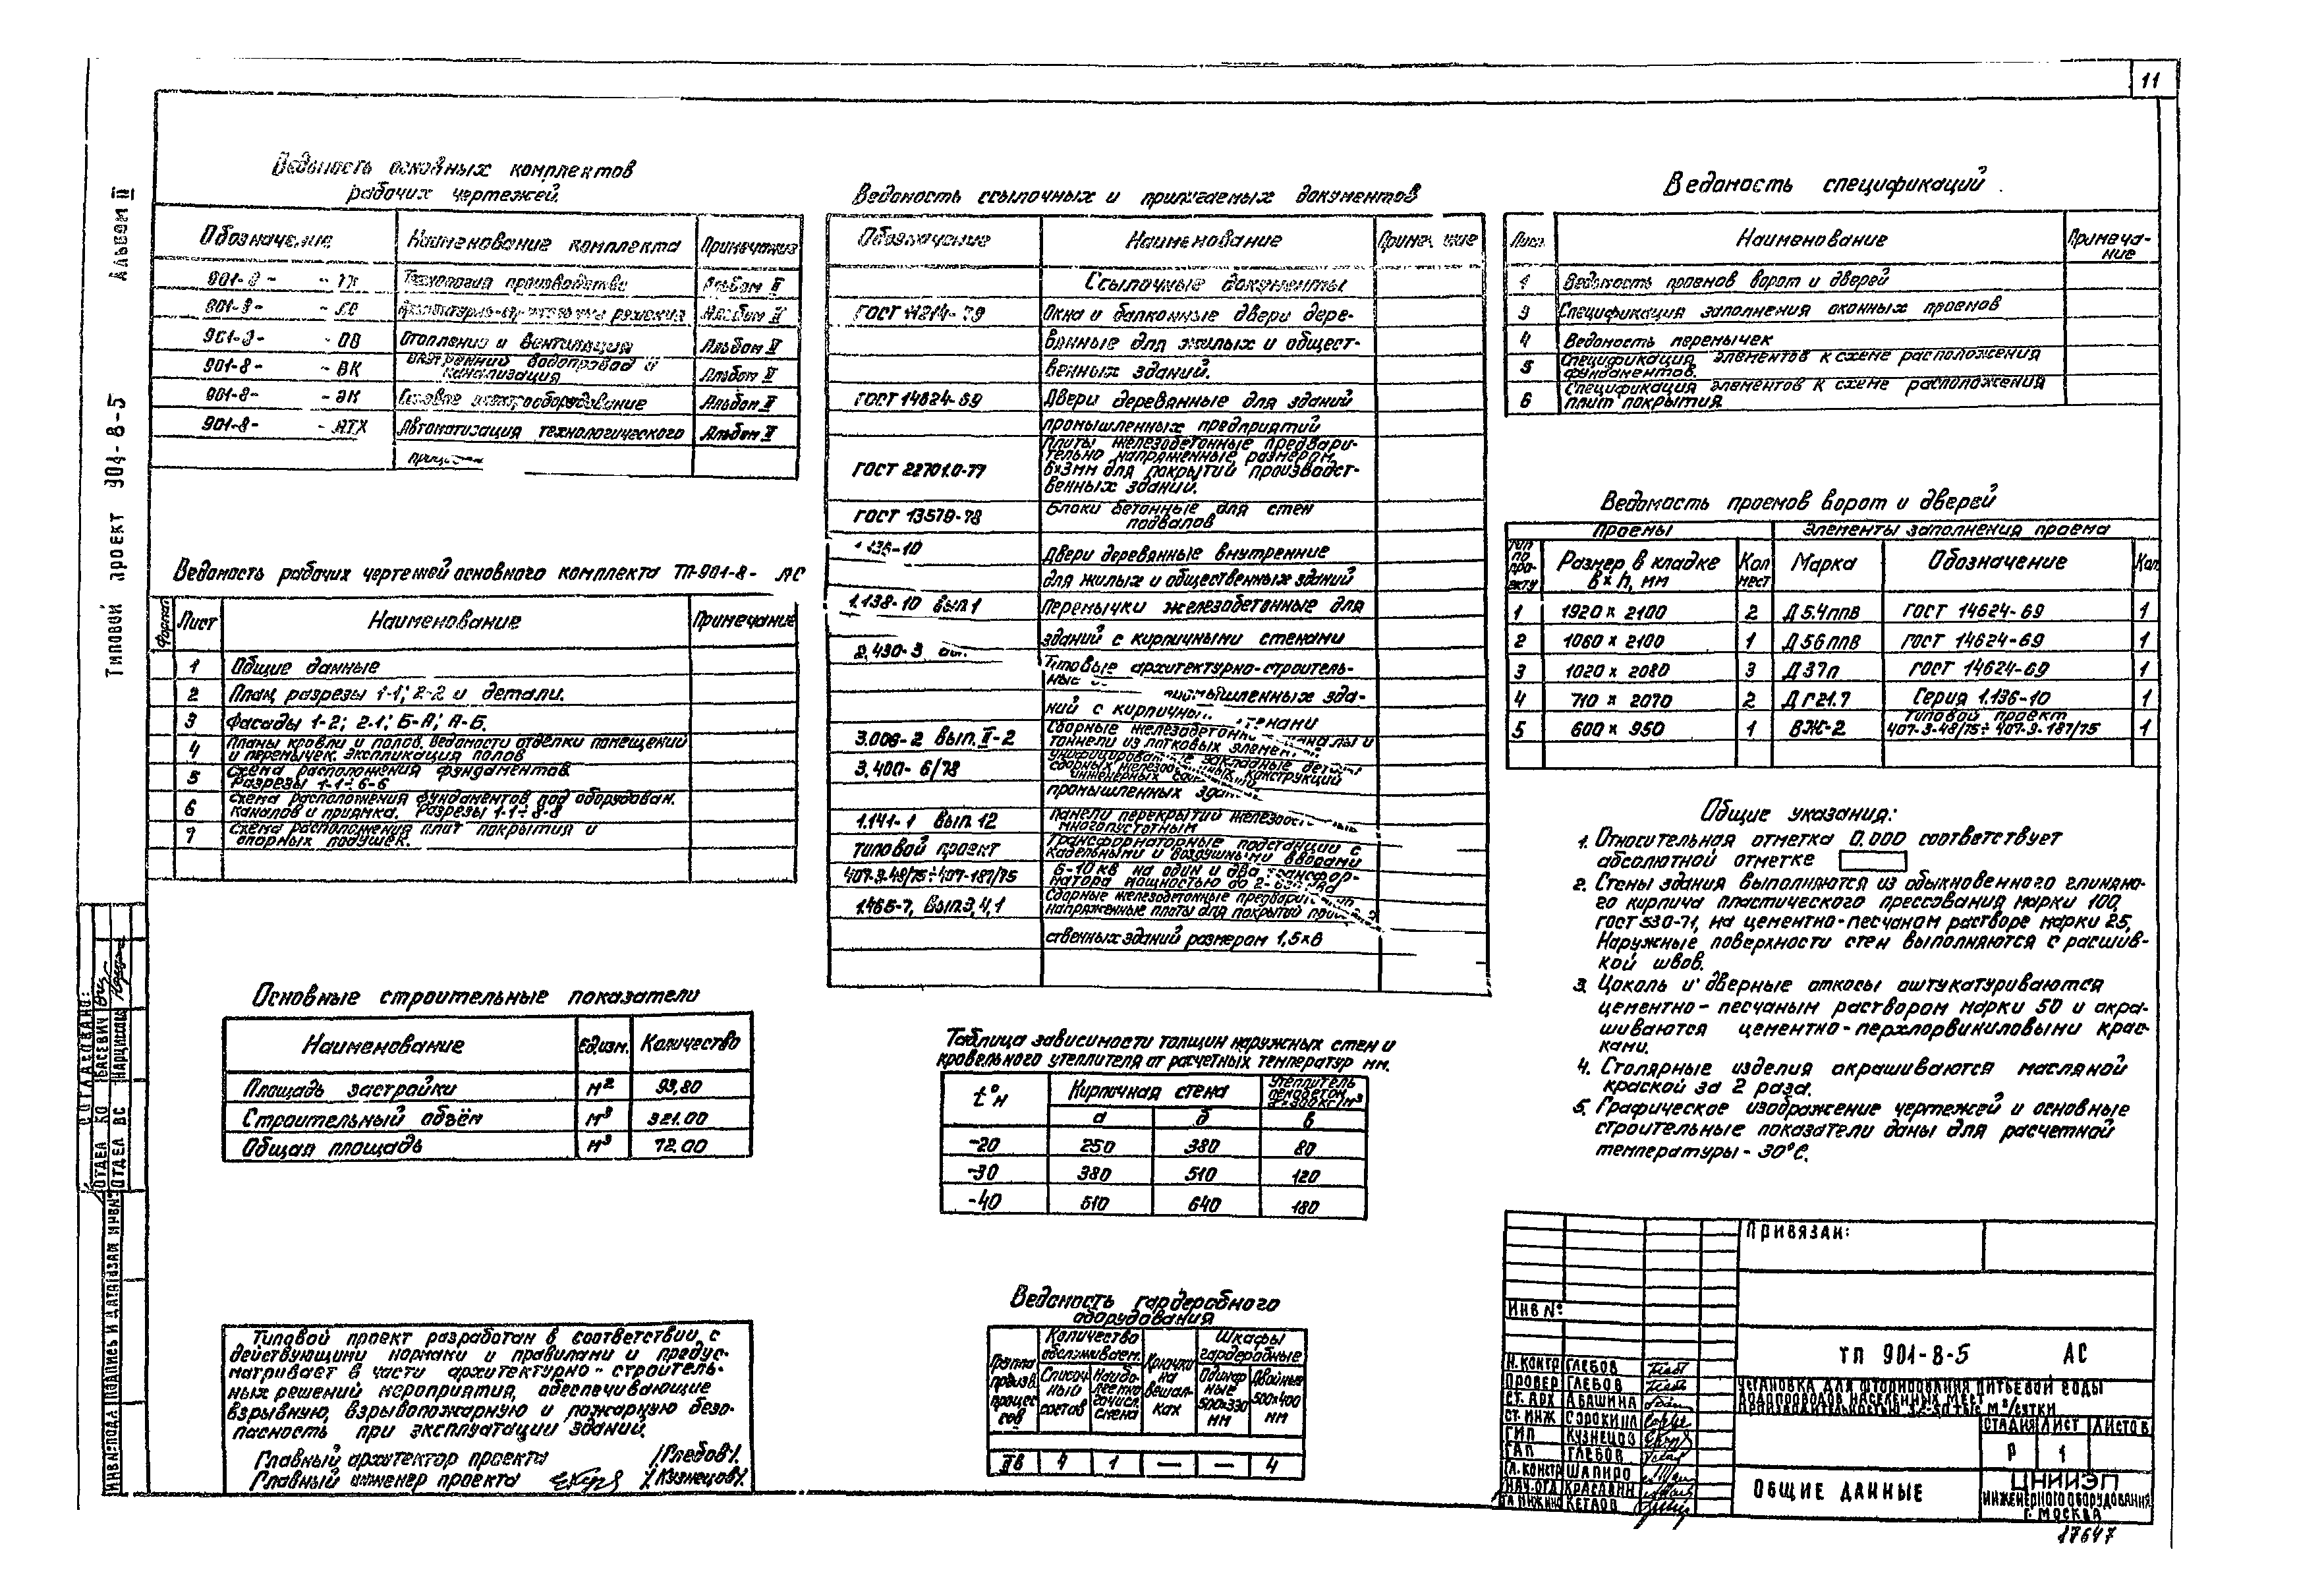 11
Альбом II
Типовой проект 901-8-5
Ведомость основных комплектов
рабочих чертежей.
Обозначение Наименование комплекта Примечания
901-8- Технология производства Альбом II
901-8- Альбом II
901-8- - ОВ Отопление и вентиляция Альбом II
901-8- - ВК Внутренний водопровод и канализация Альбом II
901-8- - ЭК Силовое электрооборудование Альбом II
901-8- - АТХ Автоматизация технологического Альбом II
Ведомость рабочих чертежей основного комплекта ТП-901-8- АС
Формат Лист Наименование Примечание
1 Общие данные
2 План, разрезы 1-1; 2-2 и детали.
3 Фасады 1-2; 2-1; Б-А; А-Б.
4 Планы кровли и полов. Ведомости отделки помещений
и перемычек. Экспликация полов
5 Схема расположения фундаментов
Разрезы 1-1÷6-6
6 Схема расположения фундаментов под оборудован.
каналов и приямка. Разрезы 1-1÷8-8
7 Схема расположения плит покрытия и
опорных подушек.
Основные строительные показатели
Наименование Ед.изм. Количество
Площадь застройки м² 93,80
Строительный объём м³ 321.00
Общая площадь м³ 72.00
Типовой проект разработан в соответствии с
действующими нормами и правилами и предус-
матривает в части архитектурно-строитель-
ных решений мероприятия, обеспечивающие
взрывную, взрывопожарную и пожарную безо-
пасность при эксплуатации зданий.
Главный архитектор проекта /Глебов/.
Главный инженер проекта /Кузнецов/.
Ведомость ссылочных и прилагаемых документов
Обозначение Наименование
Ссылочные документы
ГОСТ 11214-79 Окна и балконные двери дере-
вянные для жилых и общест-
венных зданий.
ГОСТ 14624-69 Двери деревянные для зданий
промышленных предприятий
ГОСТ 22701.0-77 Плиты железобетонные предвари-
тельно напряженные, размером
6х3мм для покрытий производст-
венных зданий.
ГОСТ 13579-78 Блоки бетонные для стен
подвалов
1.136-10 Двери деревянные внутренние
для жилых и общественных зданий
1.138-10 вып 1 Перемычки железобетонные для
зданий с кирпичными стенами
2.430-3 Типовые архитектурно-строитель-
ные
зда-
ний с кирпичны
3.006-2 Вып. II-2 Сборные железобетон каналы и
тоннели из лотковых элемен
3.400-6/78 Унифицированные закладные детали
сборных железобетонных конструкций
инженерных
промышленных
1.141-1 Вып. 12 Панели перекрытий
многопустотным
типовой проект Трансформаторные подстанции с
кабельными и воздушными вводами
407-3-48/75÷407-187/75 6-10 кв на один и два трансфор-
матора мощностью до
1.465-7, Вып.3,4,1 Сборные железобетонные предварит
напряженные плиты для покрытий
ственных зданий размером 1,5х6
Таблица зависимости толщин наружных стен и
кровельного утеплителя от расчетных температур мм.
t°н Кирпичная стена Утеплитель
пенобетон
γ=300кг/м³
а б в
-20 250 380 80
-30 380 510 120
-40 510 640 180
Ведомость гардеробного
оборудования
Группа произв. процессов
Количество обслуживаем.
Списоч ный состав
Крючки на вешал- ках
Шкафы гардеробные
Одинар ные 500х330 мм
Двойные 500х400 мм
4 1 — — 4
Ведомость спецификаций
Лист Наименование Примеча-
ние
1 Ведомость проемов ворот и дверей
3 Спецификация заполнения оконных проемов
4 Ведомость перемычек
5 Спецификация элементов к схеме расположения
фундаментов.
6 Спецификация элементов к схеме расположения
плит покрытия
Ведомость проемов ворот и дверей
Проемы Элементы заполнения проема
Тип по про- екту Размер в кладке в×h, мм Кол мест Марка Обозначение Кол
1 1920 х 2100 2 Д 5.4ппв ГОСТ 14624-69 1
2 1060 х 2100 1 Д 56 ппв ГОСТ 14624-69 1
3 1020 х 2080 3 Д 37п ГОСТ 14624-69 1
4 710 х 2070 2 Д Г21.7 Серия 1.136-10 1
5 600 х 950 1 ВЖ-2 Типовой проект
407-3-48/75÷407-3-187/75 1
Общие указания:
1. Относительная отметка 0.000 соответствует
абсолютной отметке
2. Стены здания выполняются из обыкновенного глиняно-
го кирпича пластического прессования марки 100,
ГОСТ 530-71, на цементно-песчаном растворе марки 25,
Наружные поверхности стен выполняются с расшив-
кой швов.
3. Цоколь и дверные откосы оштукатуриваются
цементно-песчаным раствором марки 50 и окра-
шиваются цементно-перхлорвиниловыми крас-
ками.
4. Столярные изделия окрашиваются масляной
краской за 2 раза.
5. Графическое изображение чертежей и основные
строительные показатели даны для расчетной
температуры - 30°С.
Привязан:
Инв №
ТП 901-8-5 АС
Н.контр Глебов
Провер Глебов
Ст. арх Абашина
Ст. инж Сорокина
ГИП Кузнецов
ГАП Глебов
Гл. констр Шапиро
Нач. отд Красавин
Гл инжин Кетаов
Установка для фторирования питьевой воды
водопроводов населенных мест
м³/сутки
Стадия Лист Листов
Р 1
Общие данные
ЦНИИЭП
инженерного оборудования
г. Москва
17647
Согласовано:
Отдел КО Басевич
Отдел ВС Нарциссова
Инв.№подл Подпись и дата Взам инв.№